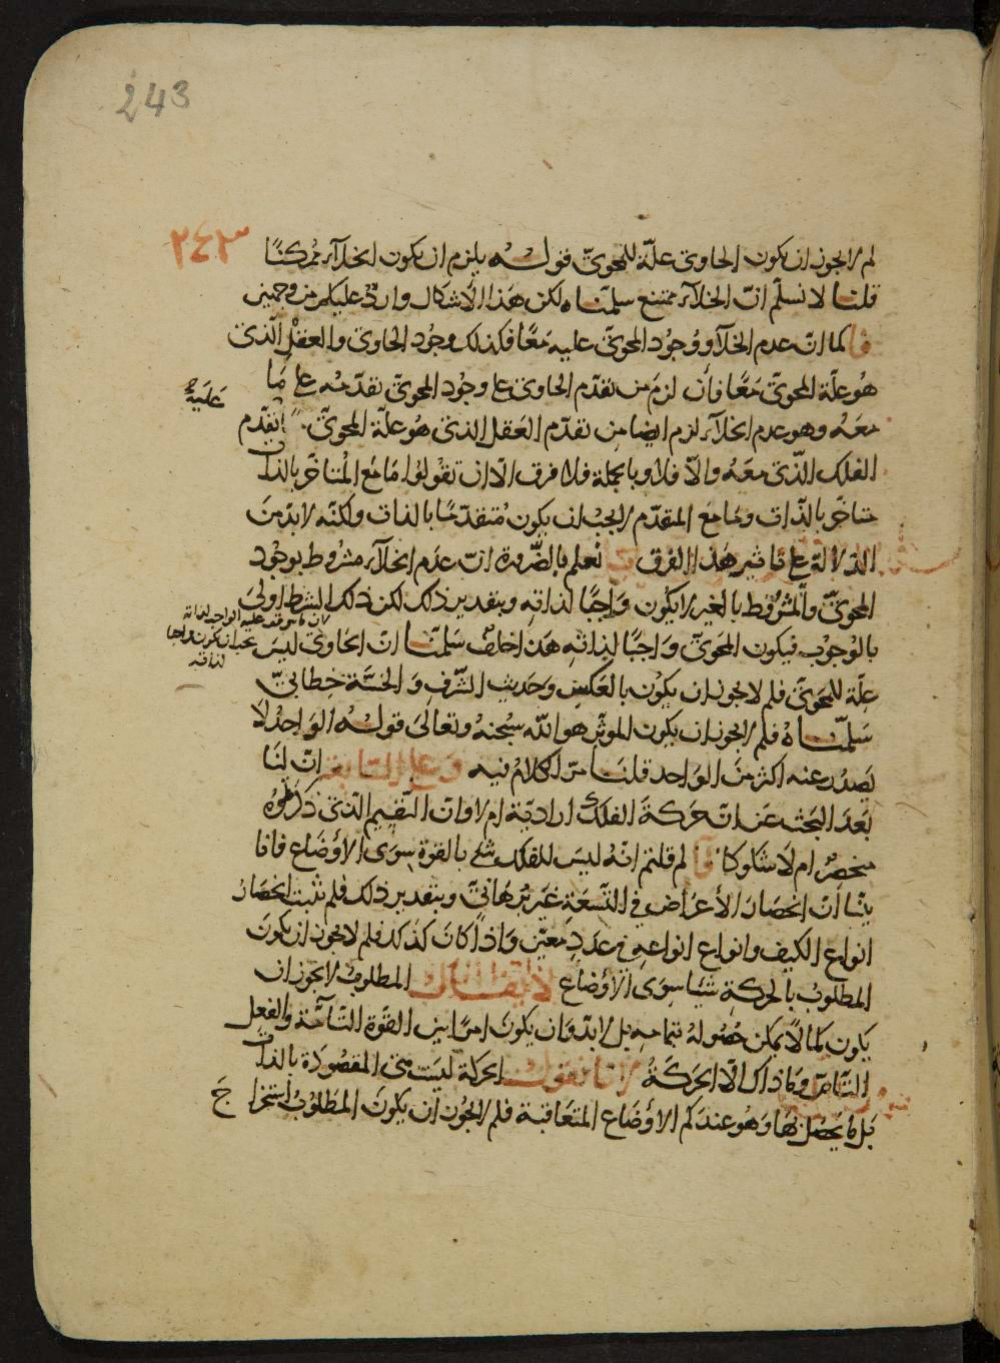 243
٢٤٣
لم لا يجوز ان يكون الحاوى علّة للمحوىّ قوله يلزم ان يكون الخلآء ممكنًا
قلنا لا نسلّم انّ الخلآء ممتنع سلّمناه لكن هذا الاشكال وارد عليكم من وجهين
كما انّ عدم الخلآء ووجود المحوىّ عليه معًا فكذلك وجود الحاوى والعقل الّذى
هو علّة المحوىّ معًا فان لزم من تقدّم الحاوى على وجود المحوىّ تقدّمه على ما
معه وهو عدم الخلآء لزم ايضا من تقدّم العقل الذى هو علّة المحوىّ تقدّم
عليه
الفلك الّذى معه والّا فلا وبالجملة فلا فرق الّا ان تقولوا ما مع المتاخّر بالذات
متاخّر بالذات وما مع المتقدّم لا يجب ان يكون متقدّمًا بالذات ولكنّه لا بدّ من
الدلالة على تاثير هذا الفرق نعلم بالضّرورة انّ عدم الخلآء مشروط بوجود
المحوىّ والمشروط بالغير لا يكون واجبًا لذاته وبتقدير ذلك لكن ذلك الشرط اولى
بالوجوب فيكون المحوىّ واجبًا لذاته هذا خلف سلّمنا انّ الحاوى ليس
علّة للمحوىّ فلم لا يجوز ان يكون بالعكس وحديث الشّرف والخسّة خطابىّ
سلّمناه فلم لا يجوز ان يكون الموثّر هو الله سبحنه وتعالى قوله الواحد لا
يصدر عنه اكثر من الواحد قلنا مرّ الكلام فيه وعلى السابع انّ لنا
بعد البحث عن انّ حركة الفلك اراديّة ام لا وانّ التقسيم الّذى ذكرتموه
منحصر ام لا شكوكا لم قلتم انّه ليس للفلك شئ بالقوة سوى الاوضاع فانا
بيّنا انّ انحصار الأعراض فى التّسعة غير برهانىّ وبتقدير ذلك فلم يثبت انحصار
انواع الكيف وانواع انواعه فى عدد معيّن واذا كان كذلك فلم لا يجوز ان يكون
المطلوب بالحركة شيئا سوى الاوضاع المطلوب لا يجوز ان
يكون كمالًا يمكن حصوله بتمامه بل لا بدّ وان يكون امرًا بين القوّة التّامّة والفعل
التّامّ وما ذاك الّا الحركة لانا نقول الحركة ليست هى المقصودة بالذات
بل ما يحصل بها وهو عندكم الاوضاع المتعاقبة فلم لا يجوز ان يكون المطلوب استخراج